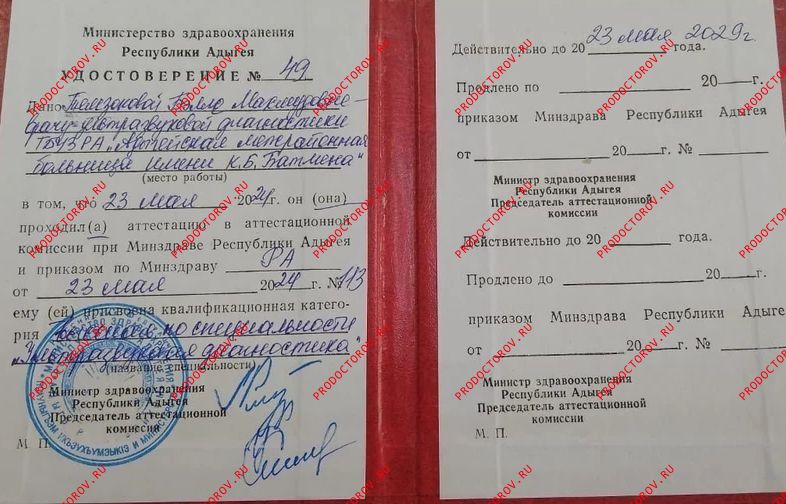 Министерство здравоохранения
Республики Адыгея
УДОСТОВЕРЕНИЕ № 49
Дано
врачу ультразвуковой диагностики
ГБУЗ РА "Адыгейская межрайонная
больница имени К.Б. Батмена"
(место работы)
в том, что 23 мая 2024г. он (она)
проходил(а) аттестацию в аттестационной
комиссии при Минздраве Республики Адыгея
и приказом по Минздраву РА
от 23 мая 2024 г. № 113
ему (ей) присвоена квалификационная катего-
рия по специальности
"Ультразвуковая диагностика"
(название специальности)
Министр здравоохранения
Республики Адыгея
Председатель аттестационной
комиссии
М. П.
Действительно до 20 23 мая 2029г. года.
Продлено по 20 г.
приказом Минздрава Республики Адыгея
от 20 г. №
Министр здравоохранения
Республики Адыгея
Председатель аттестационной
комиссии
Действительно до 20 года.
Продлено до 20 г.
приказом Минздрава Республики Адыгея
от 20 г. №
Министр здравоохранения
Республики Адыгея
Председатель аттестационной
комиссии
М. П.
PRODOCTOROV.RU